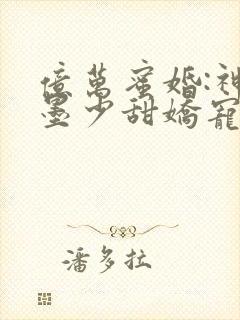 億萬蜜婚:神
墨少甜嬌寵
潘多拉